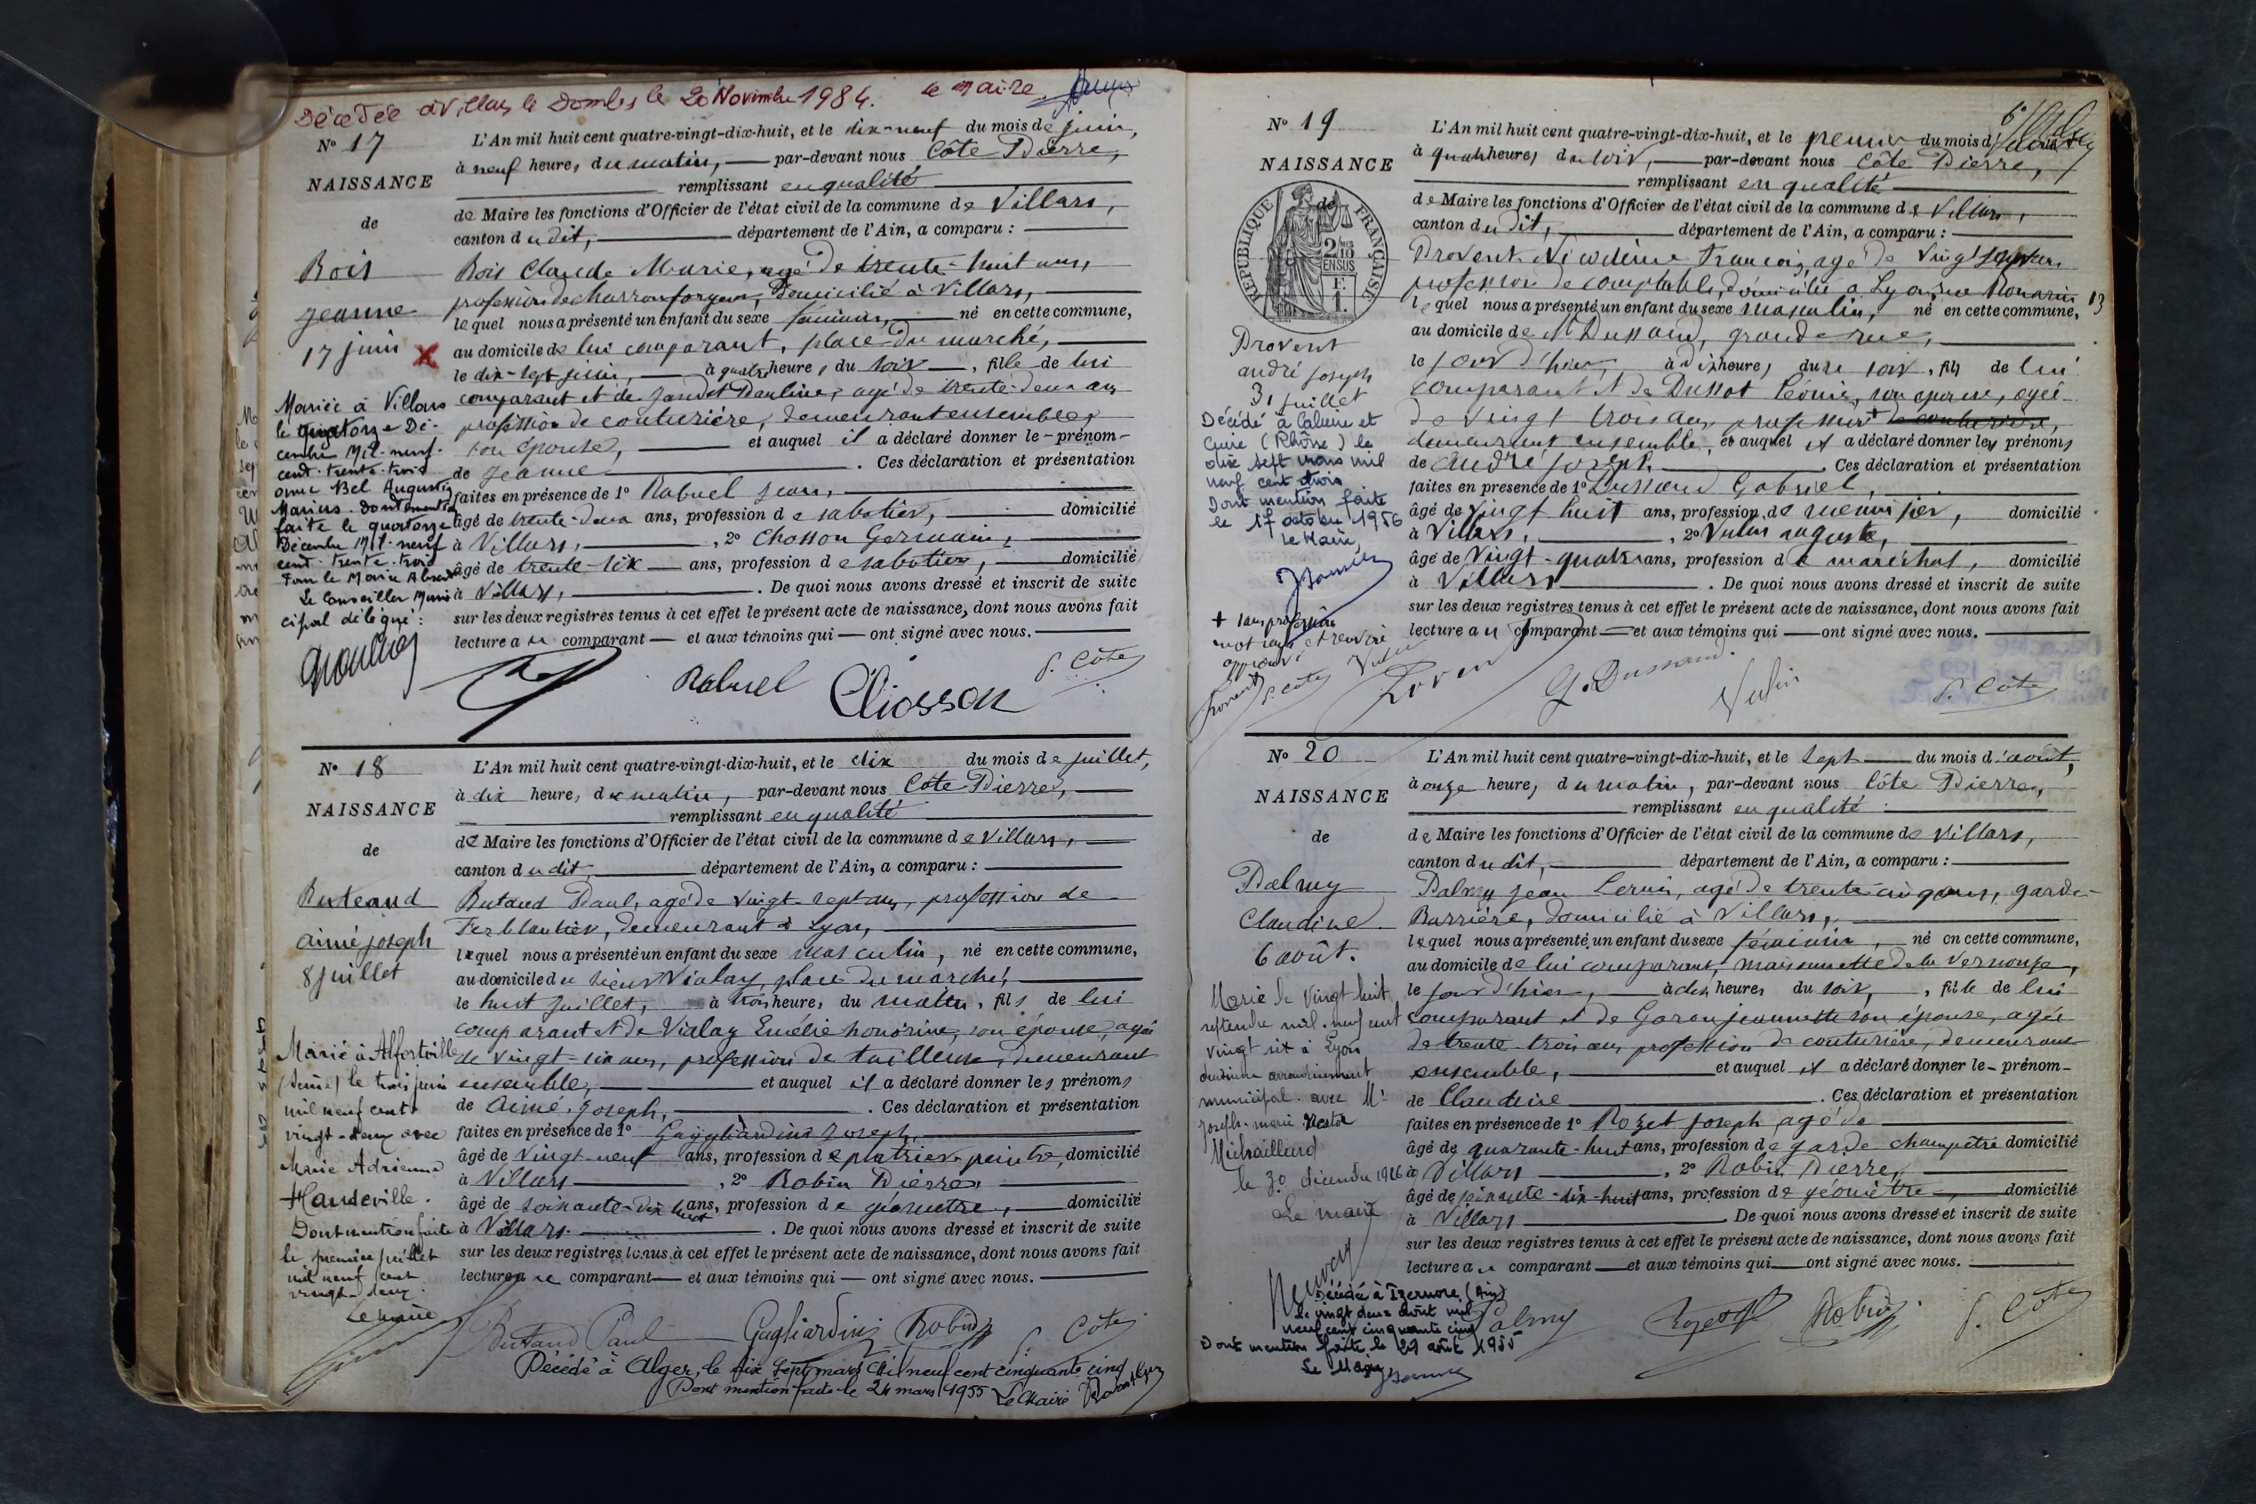 Décédée à Villars les Dombes le 20 Novembre 1984. Le Maire
N° 17
NAISSANCE
de
Bois
Jeanne
17 juin X
Mariée à Villars
le quatorze Dé-
cembre Mil-neuf-
cent-trente-trois
avec Bel Augustin
Marius. Dont mention
faite le quatorze
Décembre Mil-neuf
cent-trente-trois
Pour le Maire Absent
Le Conseiller Muni-
cipal délégué :
L'An mil huit cent quatre-vingt-dix-huit, et le dix-neuf du mois de juin,
à neuf heures du matin, par-devant nous Côte Pierre,
remplissant en qualité
de Maire les fonctions d'Officier de l'état civil de la commune de Villars,
canton du dit, département de l'Ain, a comparu :
Bois Claude Marie, agé de trente-huit ans,
profession de charron forgeur, domicilié à Villars,
lequel nous a présenté un enfant du sexe féminin, né en cette commune,
au domicile de lui comparant, place du marché,
le dix-sept juin, à quatre heures du soir, fille de lui
comparant et de Jandet Pauline, agé de trente-deux ans
profession de couturière, demeurant ensemble,
son épouse, et auquel il a déclaré donner le prénom
de Jeanne. Ces déclaration et présentation
faites en présence de 1° Rabuel Jean,
âgé de trente-deux ans, profession de sabotier, domicilié
à Villars, 2° Chosson Germain,
âgé de trente-six ans, profession de sabotier, domicilié
à Villars, . De quoi nous avons dressé et inscrit de suite
sur les deux registres tenus à cet effet le présent acte de naissance, dont nous avons fait
lecture au comparant et aux témoins qui ont signé avec nous.
Rabuel Chosson P. Côte
N° 18
NAISSANCE
de
Buteaud
aimé joseph
8 juillet
Marié à Alfortville
(Seine) le trois juin
mil neuf cent
vingt-deux avec
Marie Adrienne
Handeville.
Dont mention faite
le premier juillet
mil neuf cent
vingt-deux.
Le maire
L'An mil huit cent quatre-vingt-dix-huit, et le dix du mois de juillet,
à dix heures du matin, par-devant nous Côte Pierre,
remplissant en qualité
de Maire les fonctions d'Officier de l'état civil de la commune de Villars,
canton du dit, département de l'Ain, a comparu :
Butaud Paul, agé de vingt-sept ans, profession de
Ferblantier, demeurant à Lyon,
lequel nous a présenté un enfant du sexe masculin, né en cette commune,
au domicile du sieur Vialay, place du marché,
le huit juillet, à trois heures du matin, fils de lui
comparant et de Vialay Emélie honorine, son épouse, agée
de vingt-six ans, profession de tailleuse, demeurant
ensemble, et auquel il a déclaré donner les prénoms
de Aimé, Joseph, . Ces déclaration et présentation
faites en présence de 1° Gaggliardini Joseph,
âgé de vingt-neuf ans, profession de platrier-peintre, domicilié
à Villars, 2° Robin Pierre,
âgé de soixante-dix huit ans, profession de géomètre, domicilié
à Villars. . De quoi nous avons dressé et inscrit de suite
sur les deux registres tenus à cet effet le présent acte de naissance, dont nous avons fait
lecture au comparant et aux témoins qui ont signé avec nous.
Butaud Paul Gagliardini Robin P. Côte
Décédé à Alger, le dix sept mars mil neuf cent cinquante cinq
Dont mention faite le 24 mars 1955 Le Maire
N° 19
NAISSANCE
de
RÉPUBLIQUE FRANÇAISE
2/10 EN SUS
F. 1.
Provent
andré joseph
31 juillet
Décédé à Caluire et
Cuire (Rhône) le
dix sept mars mil
neuf cent trois
Dont mention faite
le 17 octobre 1956
Le Maire
+ sans profession
mot rayé et renvoi
approuvé
P. Côte
L'An mil huit cent quatre-vingt-dix-huit, et le premier du mois d'
à quatre heures du soir, par-devant nous Côte Pierre,
remplissant en qualité
de Maire les fonctions d'Officier de l'état civil de la commune de Villars,
canton du dit, département de l'Ain, a comparu :
Provent Nicodème François, agé de vingt sept ans
profession de comptable, domicilié à Lyon, rue 13
lequel nous a présenté un enfant du sexe masculin, né en cette commune,
au domicile de M Dussaud, grande rue,
le jour d'hier, à dix heures du soir, fils de lui
comparant et de Dussot Léonie, son épouse, agée
de vingt trois ans, profession + de couturière,
demeurant ensemble, et auquel il a déclaré donner les prénoms
de André joseph, Ces déclaration et présentation
faites en présence de 1° Dussaud Gabriel,
âgé de vingt huit ans, profession de menuisier, domicilié
à Villars, 2° Vulin auguste,
âgé de vingt-quatre ans, profession de maréchal, domicilié
à Villars . De quoi nous avons dressé et inscrit de suite
sur les deux registres tenus à cet effet le présent acte de naissance, dont nous avons fait
lecture au comparant et aux témoins qui ont signé avec nous.
G. Dussaud. Vulin P. Côte
N° 20
NAISSANCE
de
Palmy
Claudine
6 août.
Marié le vingt huit
septembre mil-neuf cent
vingt six à Lyon
arrondissement
municipal avec Mr
Joseph-marie
Michaillard
le 30 décembre 1926
Le maire
Décédée à Izernore (Ain)
le vingt deux août mil
neuf cent cinquante cinq
Dont mention faite le 29 août 1955
Le Maire
L'An mil huit cent quatre-vingt-dix-huit, et le sept du mois d'août,
à onze heures du matin, par-devant nous Côte Pierre,
remplissant en qualité
de Maire les fonctions d'Officier de l'état civil de la commune de Villars,
canton du dit, département de l'Ain, a comparu :
Palmy jean, agé de trente cinq ans, garde-
Barrière, domicilié à Villars,
lequel nous a présenté un enfant du sexe féminin, né en cette commune,
au domicile de lui comparant, maisonnette de la Vernouse,
le jour d'hier, à dix heures du soir, fille de lui
comparant et de Goron jeannette son épouse, agée
de trente-trois ans, profession de couturière, demeurant
ensemble, et auquel il a déclaré donner le prénom
de Claudine . Ces déclaration et présentation
faites en présence de 1° Rozet Joseph, agé de
âgé de quarante-huit ans, profession de garde champêtre domicilié
à Villars, 2° Robin Pierre,
âgé de soixante-dix-huit ans, profession de géomètre, domicilié
à Villars De quoi nous avons dressé et inscrit de suite
sur les deux registres tenus à cet effet le présent acte de naissance, dont nous avons fait
lecture au comparant et aux témoins qui ont signé avec nous.
Palmy Rozet Robin P. Côte